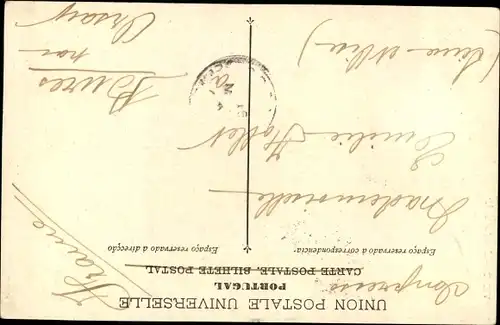 UNION POSTALE UNIVERSELLE
PORTUGAL
CARTE POSTALE. BILHETE POSTAL
Espaço reservado á correspondencia:
Espaço reservado á direcção
Mademoiselle
Emilie
Bures
par
Orsay
(Seine et Oise)
France